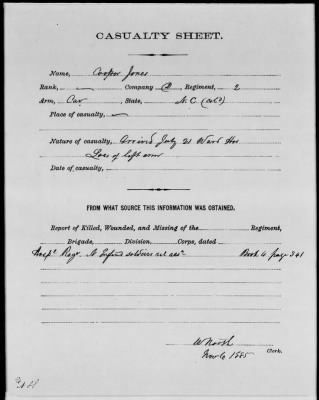 CASUALTY SHEET.
Name, Cooper Jones
Rank, Company Regiment, 2
Arm, Cav State, N.C.
Place of casualty,
Nature of casualty, Arrived July 21 Ward Hos
Loss of left arm
Date of casualty,
FROM WHAT SOURCE THIS INFORMATION WAS OBTAINED.
Report of Killed, Wounded, and Missing of the Regiment,
Brigade, Division, Corps, dated
Hospl Regr. soldiers Book 4 page 341
W North
Clerk.
Nov 6 1885